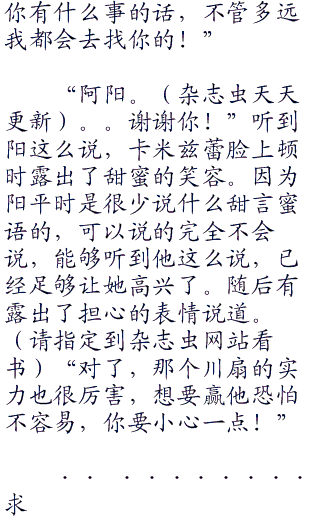 你有什么事的话，不管多远
我都会去找你的！”
“阿阳。（杂志虫天天
更新）。。谢谢你！”听到
阳这么说，卡米兹蕾脸上顿
时露出了甜蜜的笑容。因为
阳平时是很少说什么甜言蜜
语的，可以说的完全不会
说，能够听到他这么说，已
经足够让她高兴了。随后有
露出了担心的表情说道。
（请指定到杂志虫网站看
书）“对了，那个川扇的实
力也很厉害，想要赢他恐怕
不容易，你要小心一点！”
．．．．．．．．．．．
求